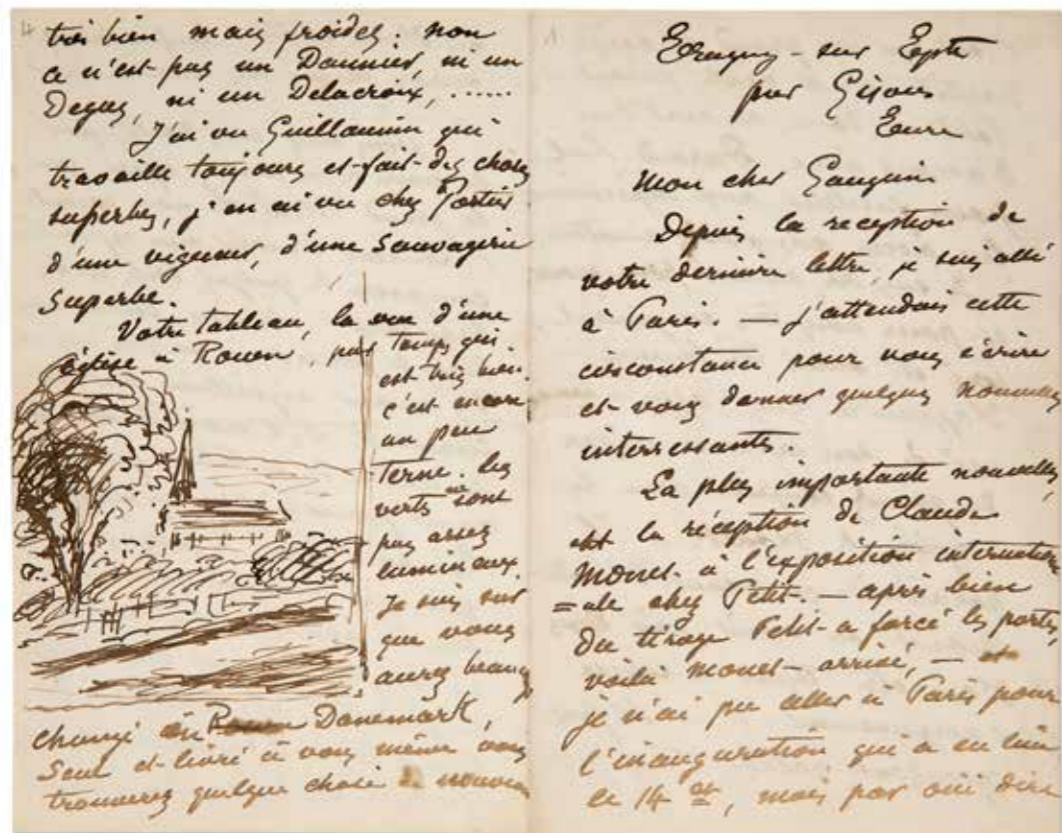 4
très bien mais froides. non
ce n'est pas un Daumier, ni un
Degas, ni un Delacroix, ......
J'ai vu Guillaumin qui
travaille toujours et fait des choses
superbes, j'en ai vu chez Portier
d'une vigueur, d'une sauvagerie
superbe.
Votre tableau, la vue d'une
église à Rouen, par temps gris.
est très bien.
c'est encore
un peu
terne. les
verts ne sont
pas assez
lumineux.
Je suis sur
que vous
aurez beaucp
changé en Danemark,
Seul et livré à vous même vous
trouverez quelque chose de nouveau
1
Eragny - sur Epte
par Gisors
Eure
Mon cher Gauguin
Depuis la reception de
votre dernière lettre, je suis allé
à Paris. — j'attendais cette
circonstance pour vous écrire
et vous donner quelques nouvelles
interressantes.
La plus importante nouvelle,
est la réception de Claude
Monet à l'exposition internation
=ale chez Petit. — après bien
du tirage Petit a forcé les portes,
voilà Monet arrivé, —
je n'ai pu aller à Paris pour
l'inauguration qui a eu lieu
le 14 et, mais par oui dire